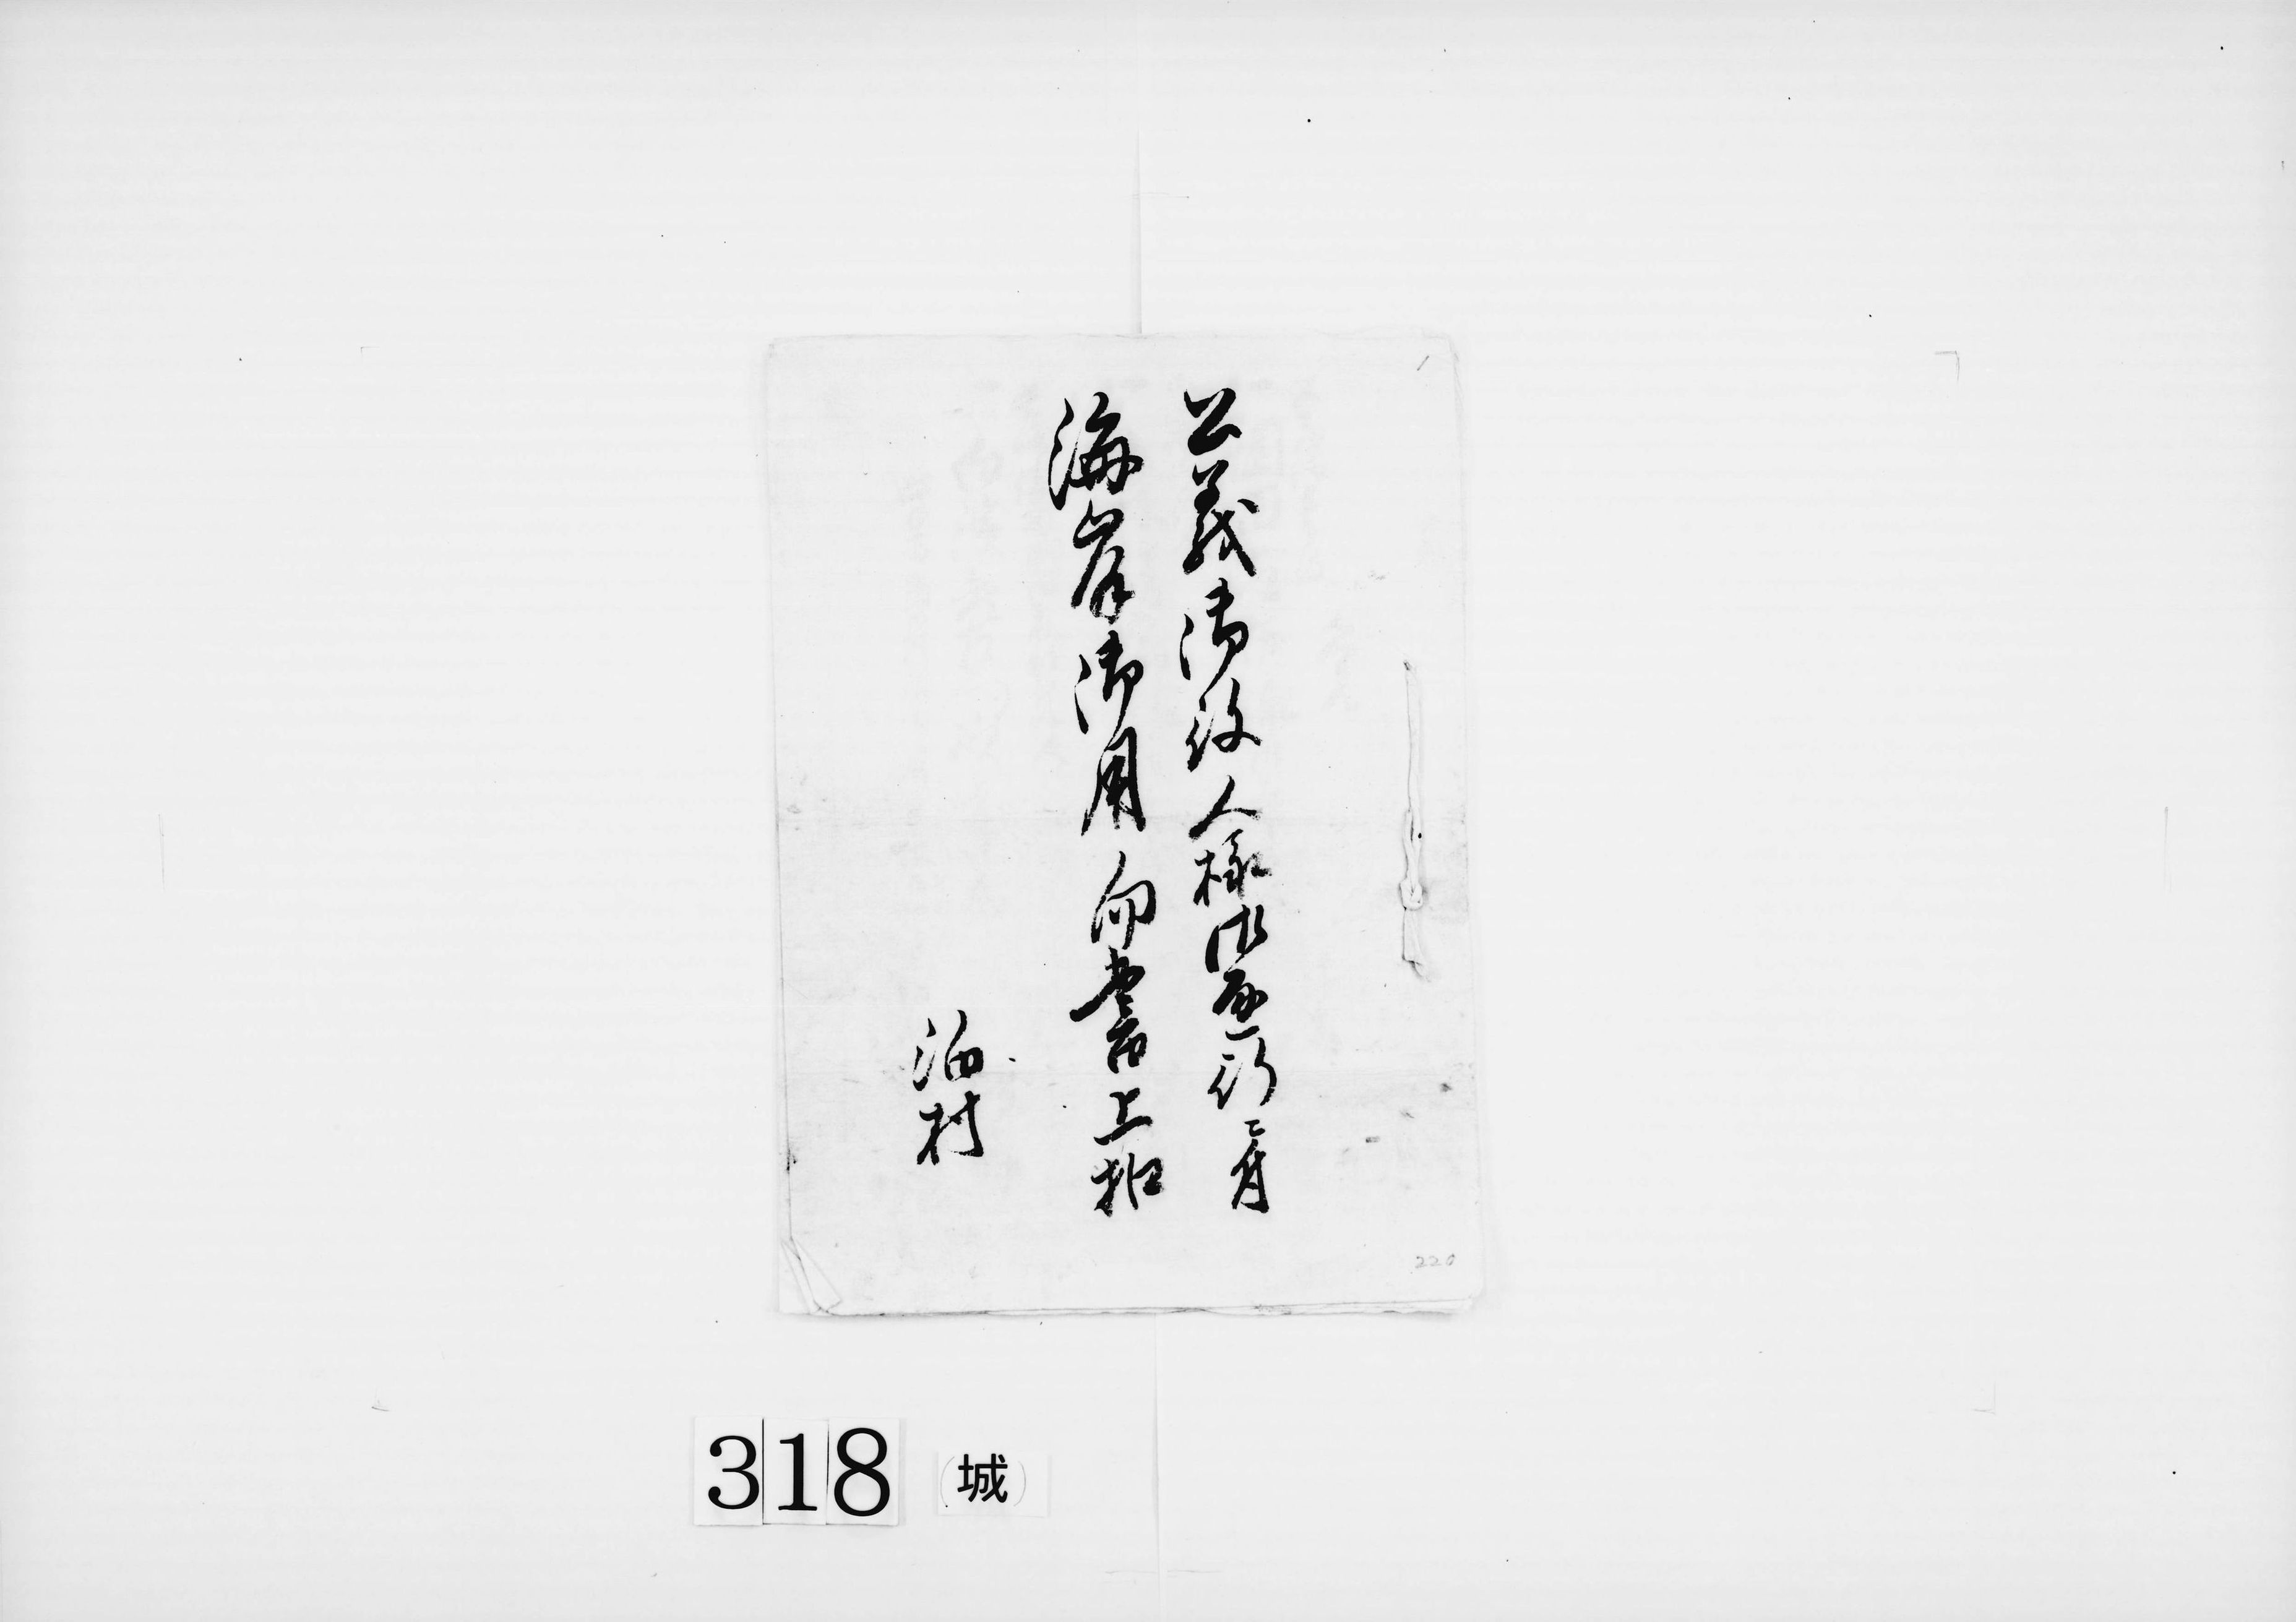 公義御役人様御通行ニ付
海岸御用向書上扣
泊村
220
318 (城)